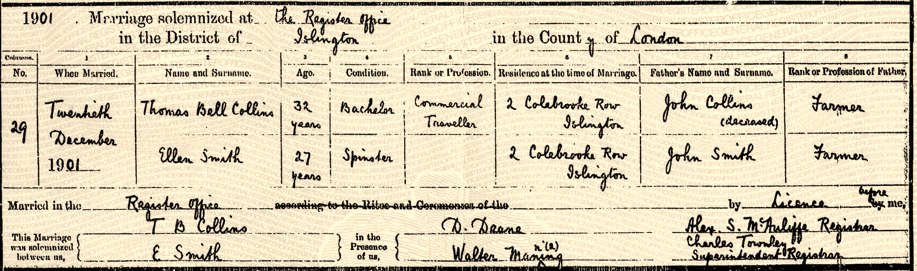 1901 . Marriage solemnized at the Register office
in the District of Islington in the County of London
Columns. 1 2 3 4 5 6 7 8
No. When Married. Name and Surname. Age. Condition. Rank or Profession. Residence at the time of Marriage. Father's Name and Surname. Rank or Profession of Father.
29 Twentieth December 1901 Thomas Bell Collins 32 years Bachelor Commercial Traveller 2 Colebrooke Row Islington John Collins (deceased) Farmer
Ellen Smith 27 years Spinster 2 Colebrooke Row Islington John Smith Farmer
Married in the Register office according to the Rites and Ceremonies of the by Licence before by me,
This Marriage was solemnized between us, T B Collins in the Presence of us, D. Deane Alex. S. McAuliffe Registrar
E Smith Walter Maning n(2) Charles Townley Superintendent Registrar